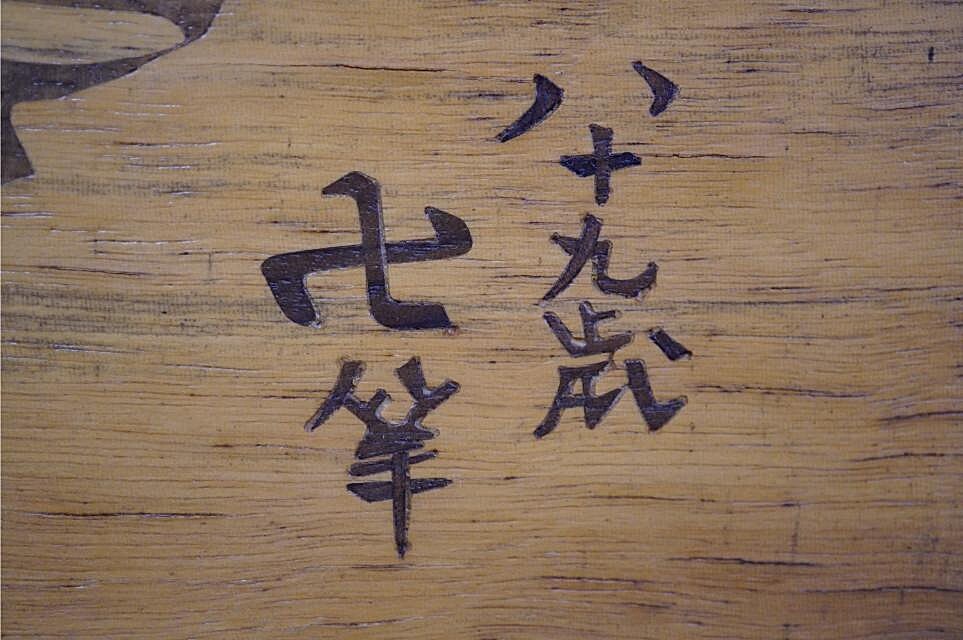 八十九歳
卍筆